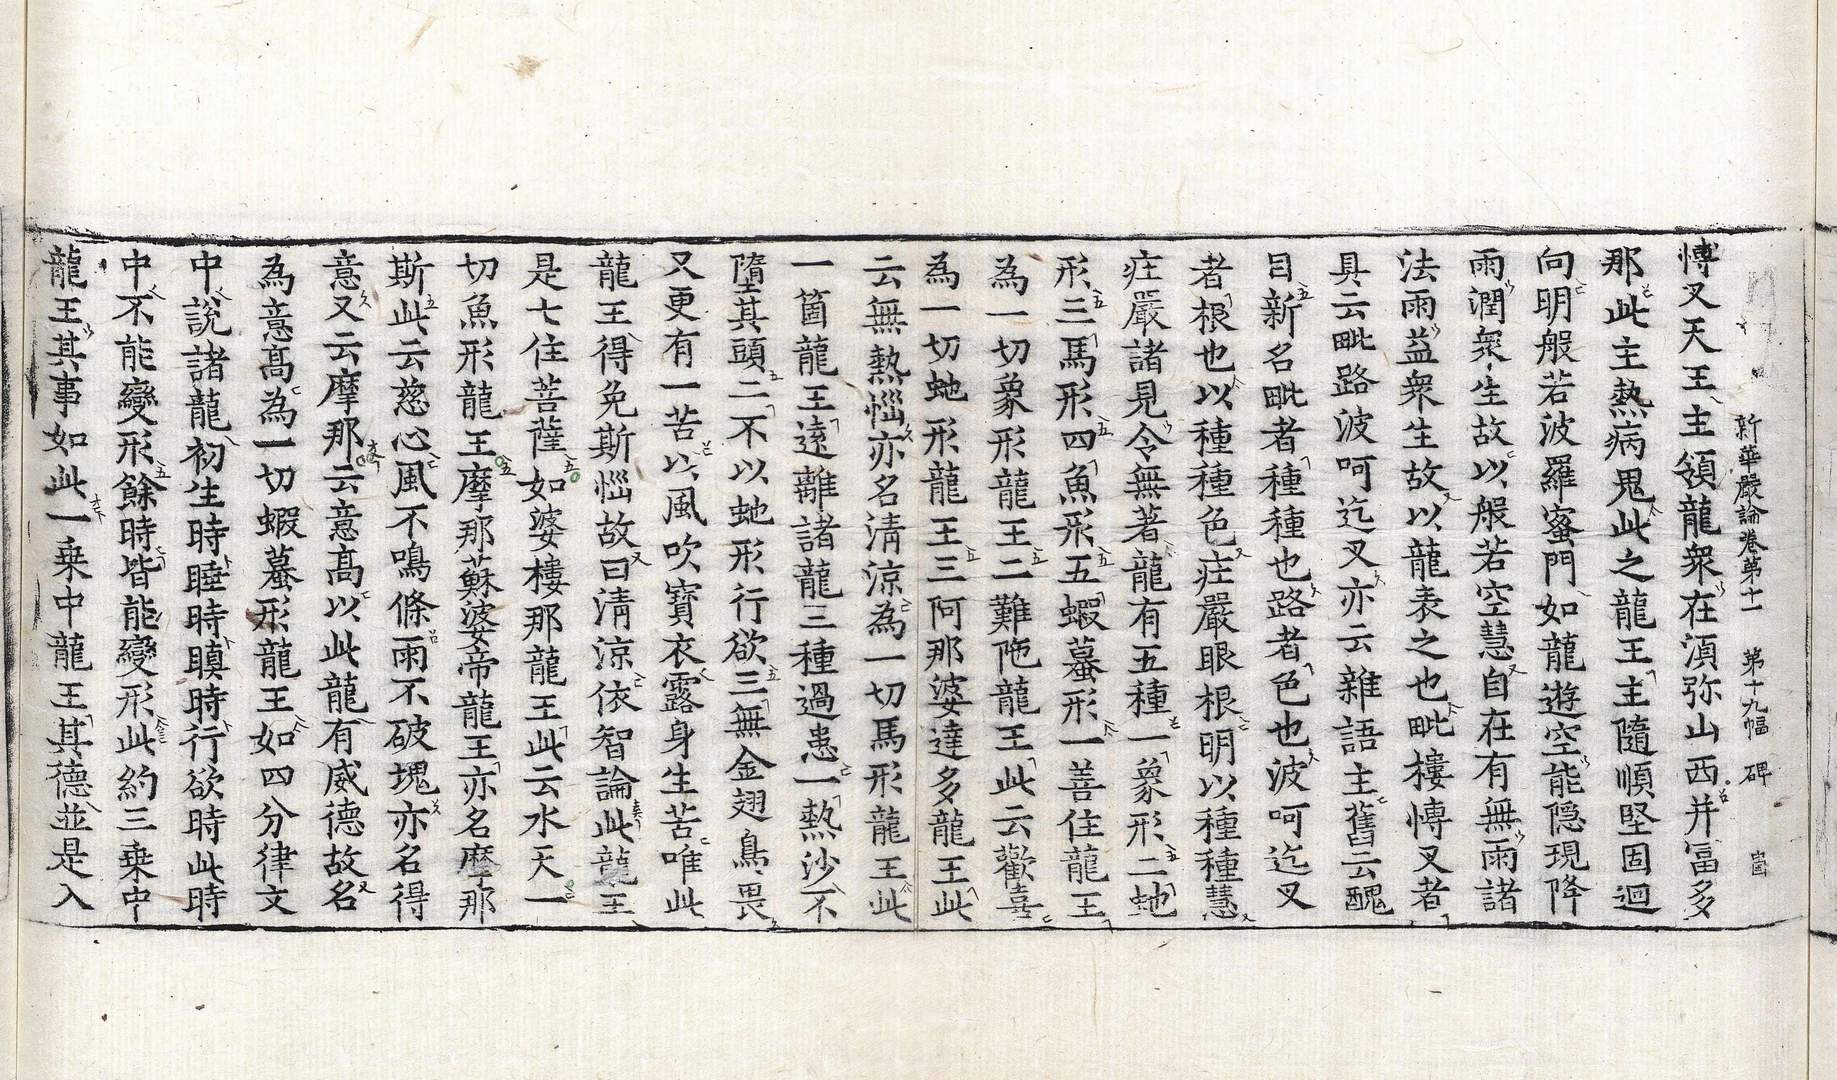 新華嚴論卷第十一　第十九幅　碑
愽叉天王主領龍衆在湏弥山西并冨多
那此主熱病鬼此之龍王主隨順堅固迴
向明般若波羅蜜門如龍遊空能隠現降
雨潤衆生故以般若空慧自在有無雨諸
法雨益衆生故以龍表之也毗樓愽叉者
具云毗路波呵迄叉亦云雜語主舊云醜
目新名毗者種種也路者色也波呵迄叉
者根也以種種色庄嚴眼根明以種種慧
庄嚴諸見令無著龍有五種一象形二虵
形三馬形四魚形五蝦蟇形一善住龍王
為一切象形龍王二難陁龍王此云歡喜
為一切虵形龍王三阿那婆達多龍王此
云無熱惱亦名清涼為一切馬形龍王此
一箇龍王遠離諸龍三種過患一熱沙不
墮其頭二不以虵形行欲三無金翅鳥畏
又更有一苦以風吹寶衣露身生苦唯此
龍王得免斯惱故曰清涼依智論此龍王
是七住菩薩如婆樓那龍王此云水天一
切魚形龍王摩那蘇婆帝龍王亦名摩那
斯此云慈心風不鳴條雨不破塊亦名得
意又云摩那云意高以此龍有威德故名
為意高為一切蝦蟇形龍王如四分律文
中說諸龍初生時睡時瞋時行欲時此時
中不能變形餘時皆能變形此約三乗中
龍王其事如此一乗中龍王其德並是入